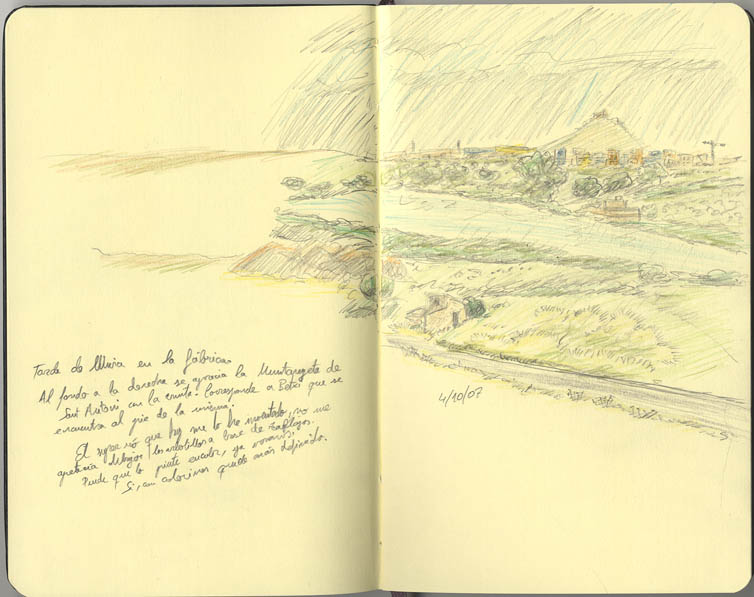 Tarde de lluvia en la fábrica.
Al fondo a la derecha se aprecia la Muntanyeta de
Sant Antoni con la ermita. Corresponde a Betxí que se
encuentra al pie de la misma.
El repecho que hay me lo he inventado, no me
apetecía dibujar los arbolillos a base de
Puede que lo pinte encolor, ya veremos.
Si, con colorines quedó más definido.
4/10/07